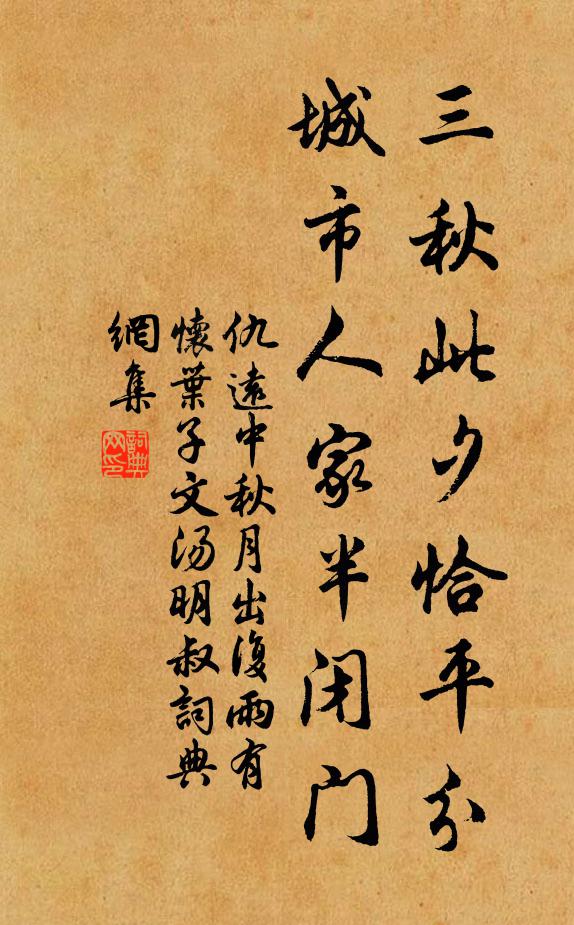 三秋此夕恰平分
城市人家半闭门
仇遠中秋月出復雨有
懷葉子文汤明叔詞典
網集
詞典
网印